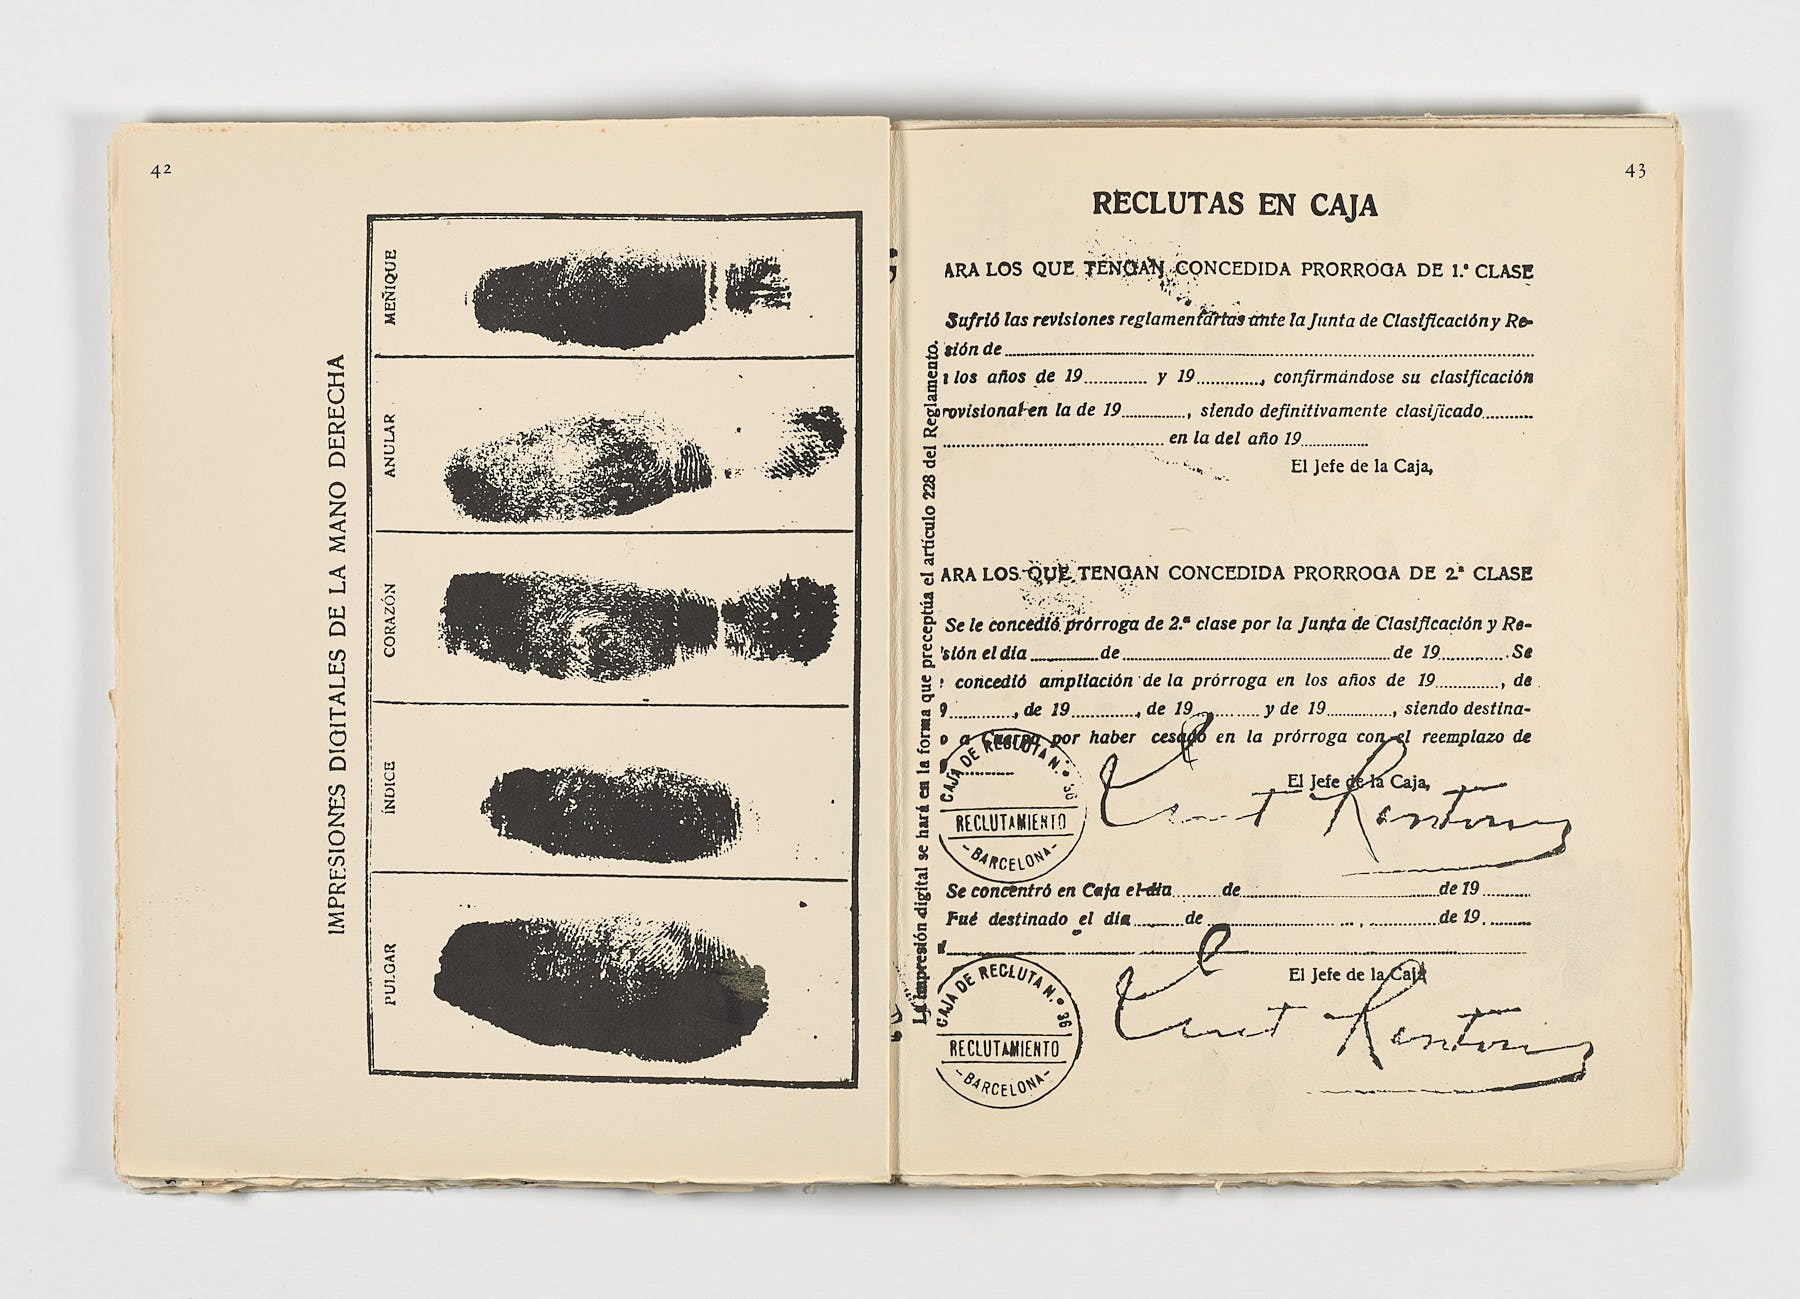 42
IMPRESIONES DIGITALES DE LA MANO DERECHA
MEÑIQUE
ANULAR
CORAZÓN
ÍNDICE
PULGAR
43
RECLUTAS EN CAJA
ARA LOS QUE TENGAN CONCEDIDA PRORROGA DE 1.ª CLASE
Sufrió las revisiones reglamentarias ante la Junta de Clasificación y Re-
sión de
los años de 19 y 19, confirmándose su clasificación
rovisional en la de 19, siendo definitivamente clasificado
en la del año 19
El Jefe de la Caja,
La impresión digital se hará en la forma que preceptúa el artículo 228 del Reglamento.
ARA LOS QUE TENGAN CONCEDIDA PRORROGA DE 2.ª CLASE
Se le concedió prórroga de 2.ª clase por la Junta de Clasificación y Re-
sión el día de de 19. Se
concedió ampliación de la prórroga en los años de 19, de
9, de 19, de 19 y de 19, siendo destina-
o a Cuerpo por haber cesado en la prórroga con el reemplazo de
El Jefe de la Caja,
CAJA DE RECLUTA N.º 36
RECLUTAMIENTO
-BARCELONA-
Se concentró en Caja el día de de 19
Fué destinado el día de , de 19.
El Jefe de la Caja
CAJA DE RECLUTA N.º 36
RECLUTAMIENTO
-BARCELONA-